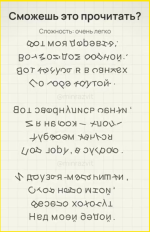 Сможешь это прочитать?
Сложность: очень легко
Вот моя деревня,
Вот мой дом родной,
Вот качусь я в санках
По горе крутой.
Вот свернулись санки,
И я на бок — хлоп!
Кубарем качуся
Под гору, в сугроб.
И друзья-мальчишки,
Стоя надо мной,
Весело хохочут
Над моей бедой.